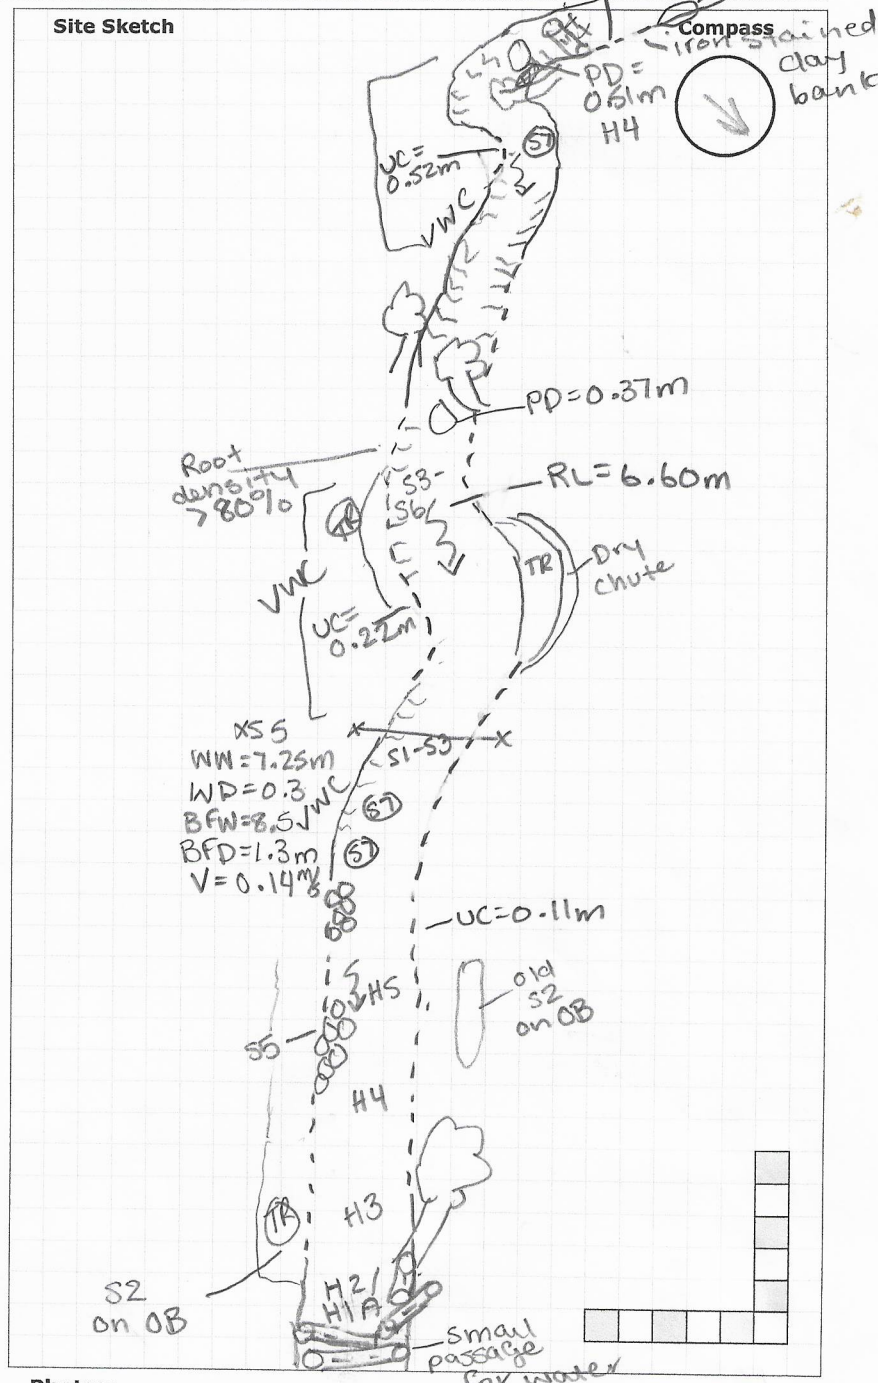 Site Sketch
Compass
iron stained
clay
bank
PD=
0.51m
H4
ST
UC=
0.52m
VWC
PD=0.37m
Root
density
>80%
S3-
S6
RL=6.60m
TR
TR
Dry
chute
VWC
UC=
0.22m
XS5
WW=7.25m
WD=0.3
BFW=8.5
BFD=1.3m
V=0.14m/s
S1-S3
VWC
ST
ST
UC=0.11m
H5
old
S2
on OB
S5
H4
TR
H3
S2
on OB
H2/
H1A
small
passage
for water